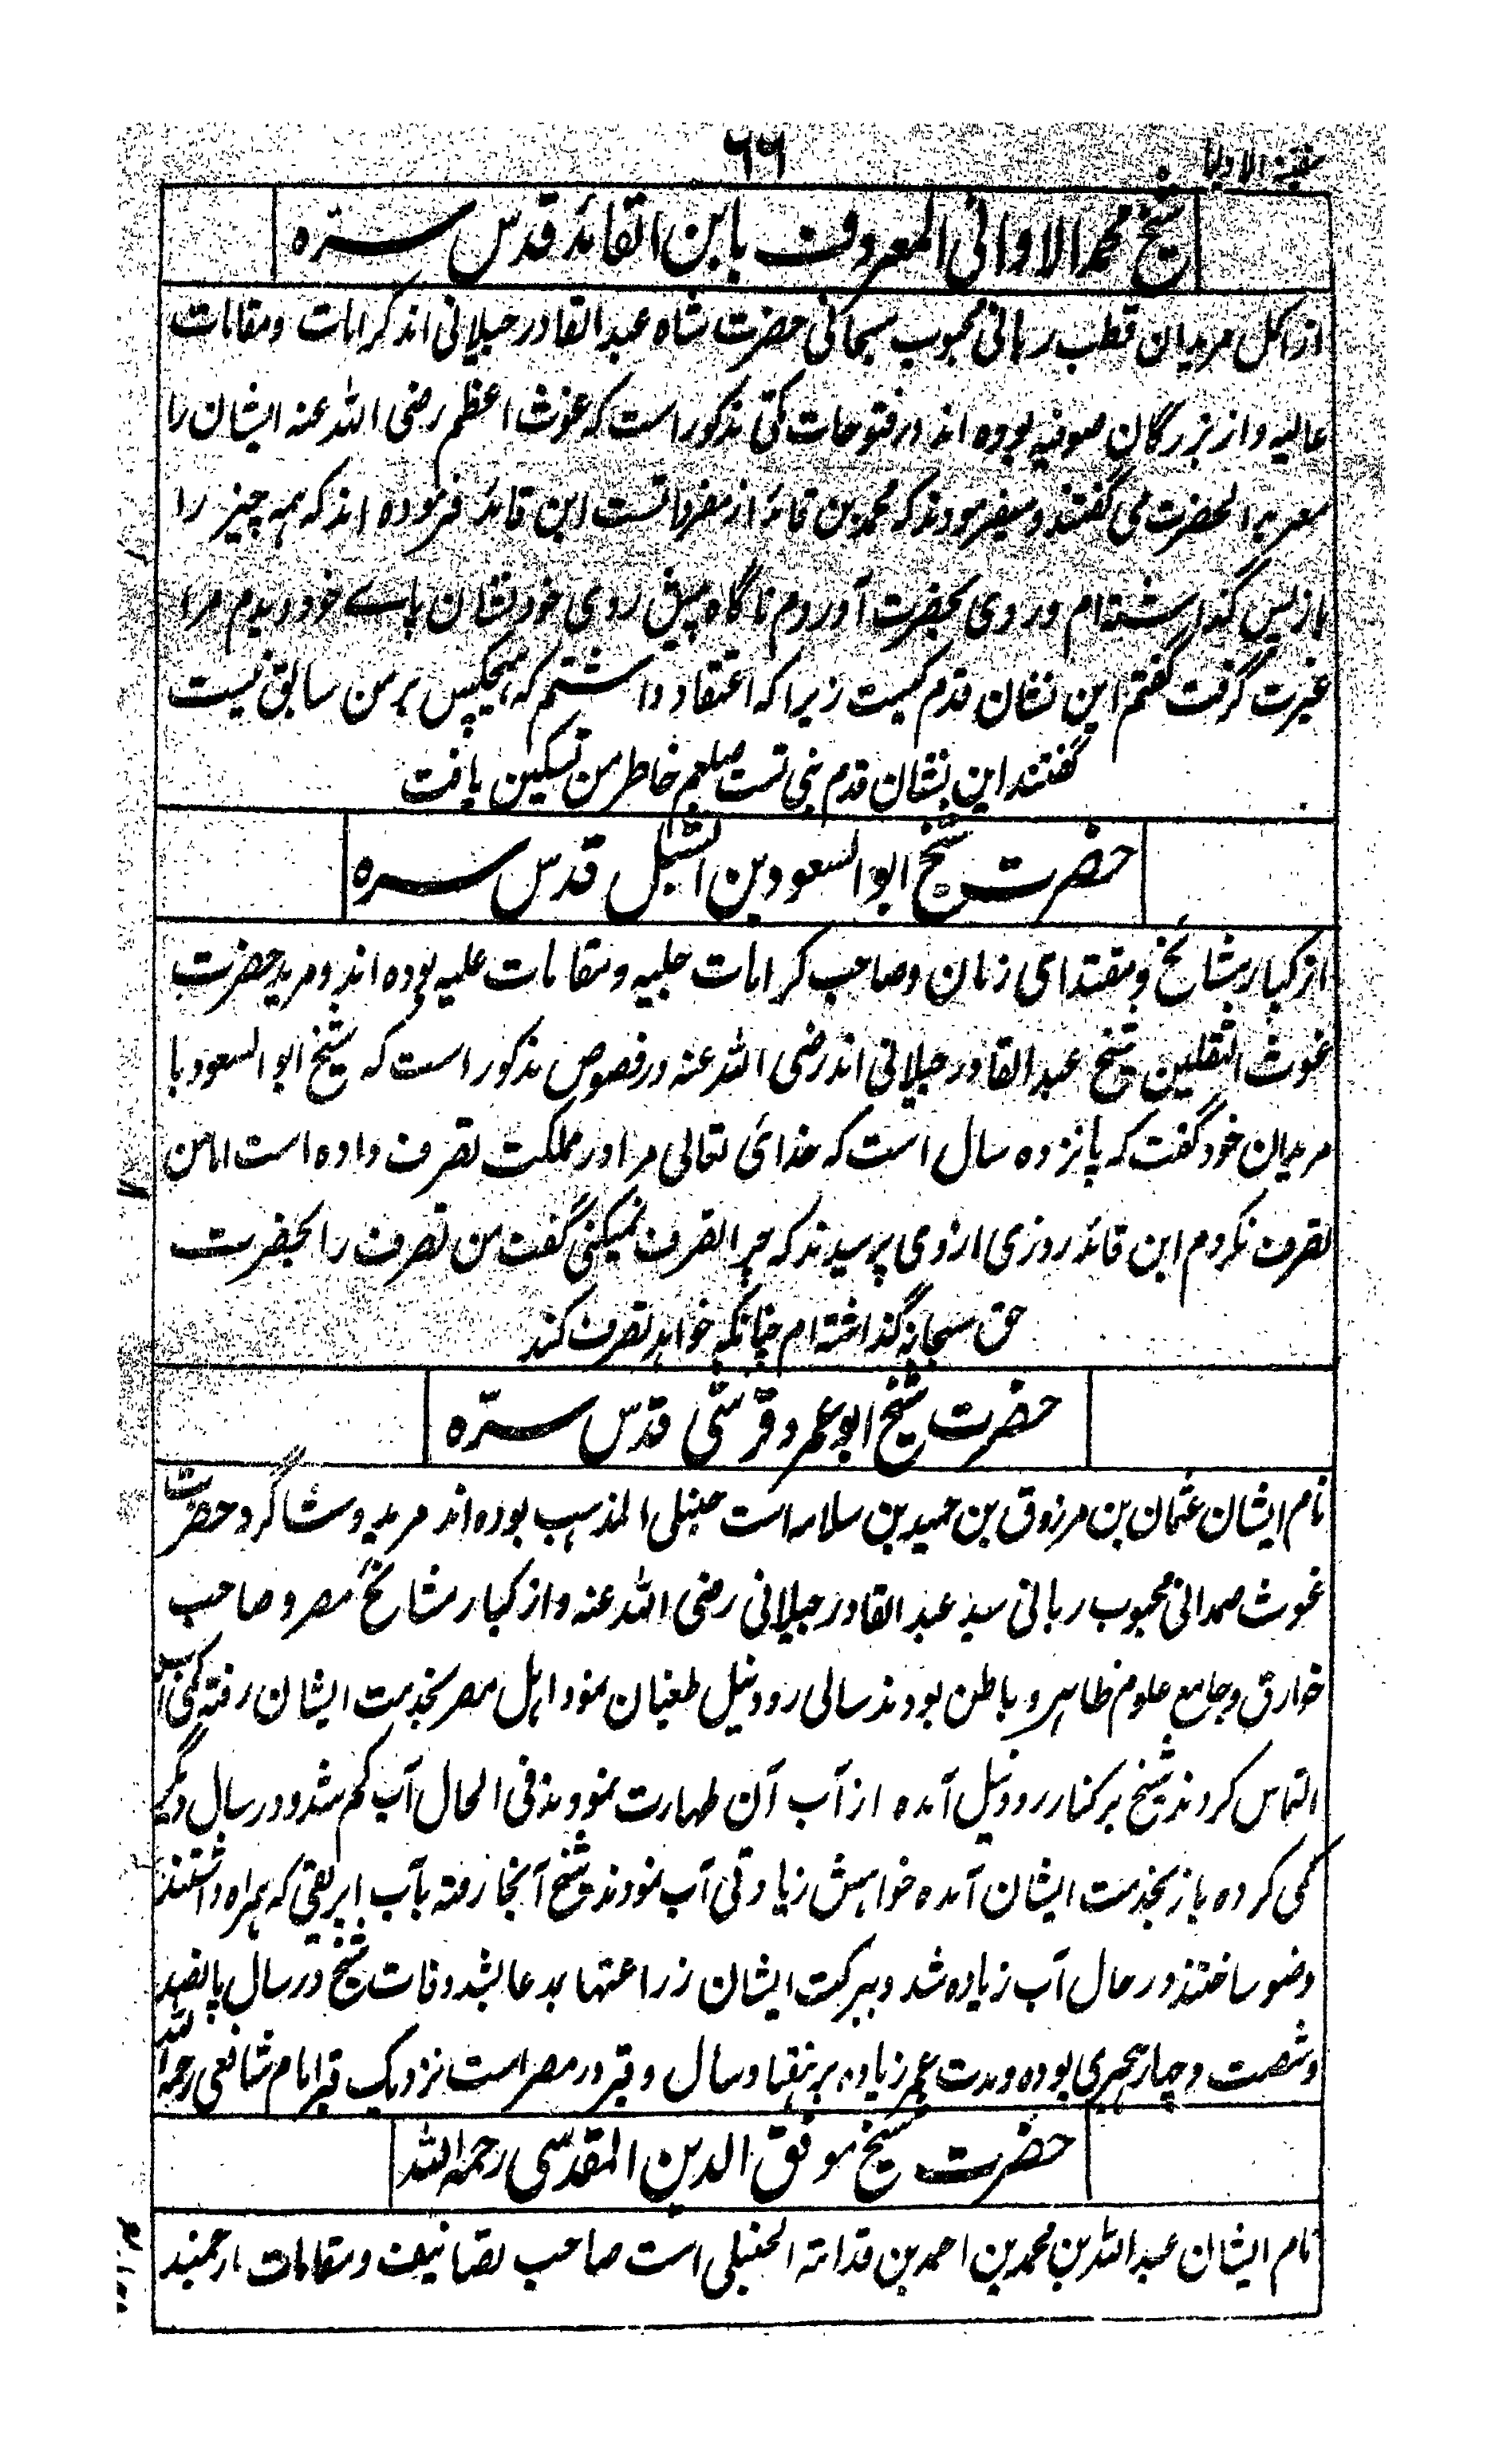 سفینة الاولیا
۶۶
شیخ محمد الاوانی المعروف بابن القائد قدس سرّه
از اکمل مریدان قطب ربانی محبوب سبحانی حضرت شاه عبد القادر جیلانی اند کرامات و مقامات
عالیه و از بزرگان صوفیه بوده اند در فتوحات مکی مذکور است که غوث اعظم رضی الله عنه ایشان را
معربد الحضرت می گفتند و میفرمودند که محمد بن قائد از مفرداتست ابن قائد فرموده اند که همه چیز را
باز پس گذاشته ام و روی بحضرت آوردم ناگاه پیش روی خود نشان پاے خود دیدم مرا
غیرت گرفت گفتم این نشان قدم کیست زیرا که اعتقاد داشتم که هیچکس بر من سابق نیست
گفتند این نشان قدم نبی تست صلعم خاطر من تسکین یافت
حضرت شیخ ابو السعود بن الشبل قدس سره
از کبار مشائخ و مقتدای زمان و صاحب کرامات جلیه و مقامات علیه بوده اند و مرید حضرت
غوث الثقلین شیخ عبد القادر جیلانی اند رضی الله عنه در فصوص مذکور است که شیخ ابو السعود با
مریدان خود گفت که پانزده سال است که خدائ تعالی مرا در مملکت تصرف داده است اما من
تصرف نکردم ابن قائد روزی از وی پرسیدند که چرا تصرف نمیکنی گفت من تصرف را بحضرت
حق سبحانه گذاشته ام چنانکه خواهد تصرف کند
حضرت شیخ ابو عمرو قرشی قدس سرّه
نام ایشان عثمان بن مرزوق بن حمید بن سلامه است حنبلی المذهب بوده اند مرید و شاگرد حضرت
غوث صمدانی محبوب ربانی سید عبد القادر جیلانی رضی الله عنه و از کبار مشائخ مصر و صاحب
خوارق و جامع علوم ظاهر و باطن بودند سالی رود نیل طغیان نمود اهل مصر بخدمت ایشان رفته کمی آب
التماس کردند شیخ بر کنار رود نیل آمده از آب آن طهارت نمودند فی الحال آب کم شد و در سال دیگر
کمی کرده باز بخدمت ایشان آمده خواهش زیادتی آب نمودند شیخ آنجا رفته بآب ابریقی که همراه داشتند
وضو ساختند در حال آب زیاده شد و ببرکت ایشان زراعتها بمدعا بشد وفات شیخ در سال پانصد
و شصت و چهار هجری بوده و مدت عمر زیاده بر هفتاد سال و قبر در مصر است نزدیک قبر امام شافعی رحمه الله
حضرت شیخ موفق الدین المقدسی رحمه الله
نام ایشان عبد الله بن محمد بن احمد بن قدامة الحنبلی است صاحب تصانیف و مقامات ارجمند